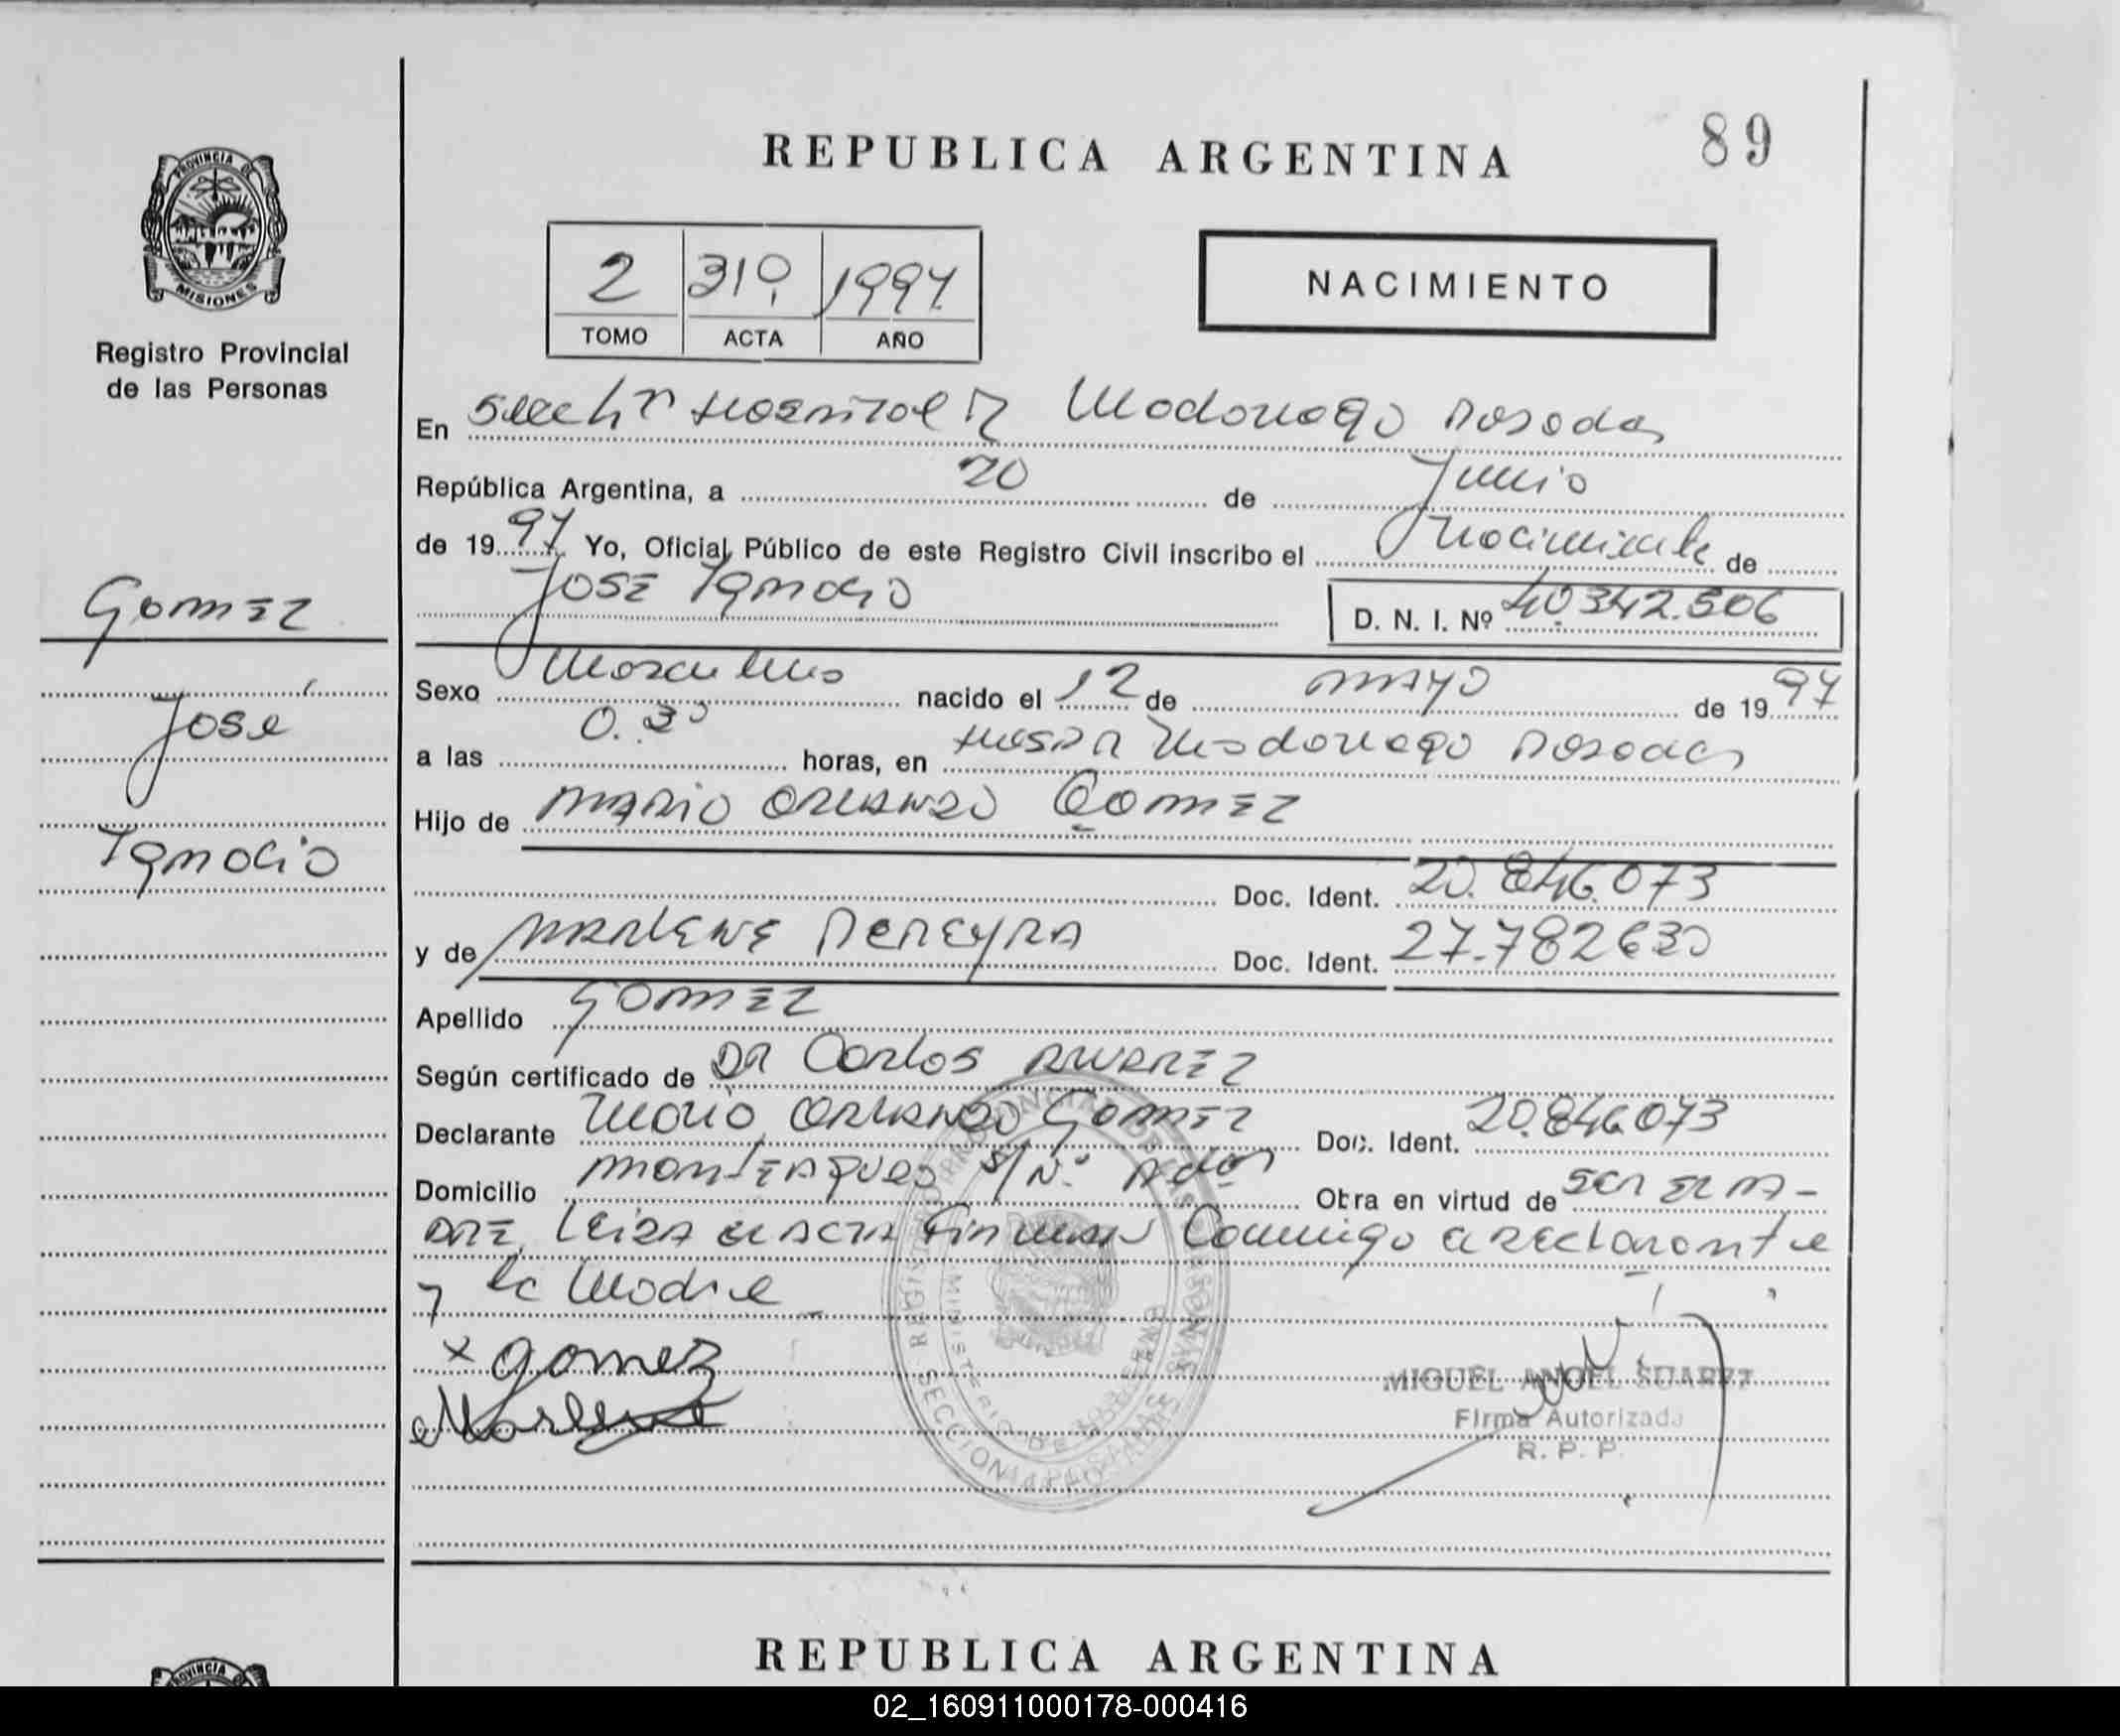 89
REPUBLICA ARGENTINA
PROVINCIA DE
MISIONES
Registro Provincial
de las Personas
2 310 1997
TOMO ACTA AÑO
NACIMIENTO
En Madariaga Posadas
República Argentina, a 20 de Junio
de 1997 Yo, Oficial Público de este Registro Civil inscribo el Nacimiento de
José Ignacio D. N. I. Nº 40.342.506
Gomez
José
Ignacio
Sexo Masculino nacido el 12 de mayo de 1997
a las 0.30 horas, en Hosp R Madariaga Posadas
Hijo de MARIO ORLANDO GOMEZ
Doc. Ident. 20.846.073
y de MARLENE PEREYRA Doc. Ident. 27.782630
Apellido GOMEZ
Según certificado de DR Carlos ALVAREZ
Declarante Mario ORLANDO GOMEZ Doc. Ident. 20.846.073
Domicilio S/Nº Pdas Obra en virtud de SER EL PA-
DRE LEIDA EL ACTA Conmigo el declarante
y la Madre
x gomez
Marlene
MIGUEL ANGEL SUAREZ
Firma Autorizada
R. P. P.
REPUBLICA ARGENTINA
PROVINCIA
02_160911000178-000416